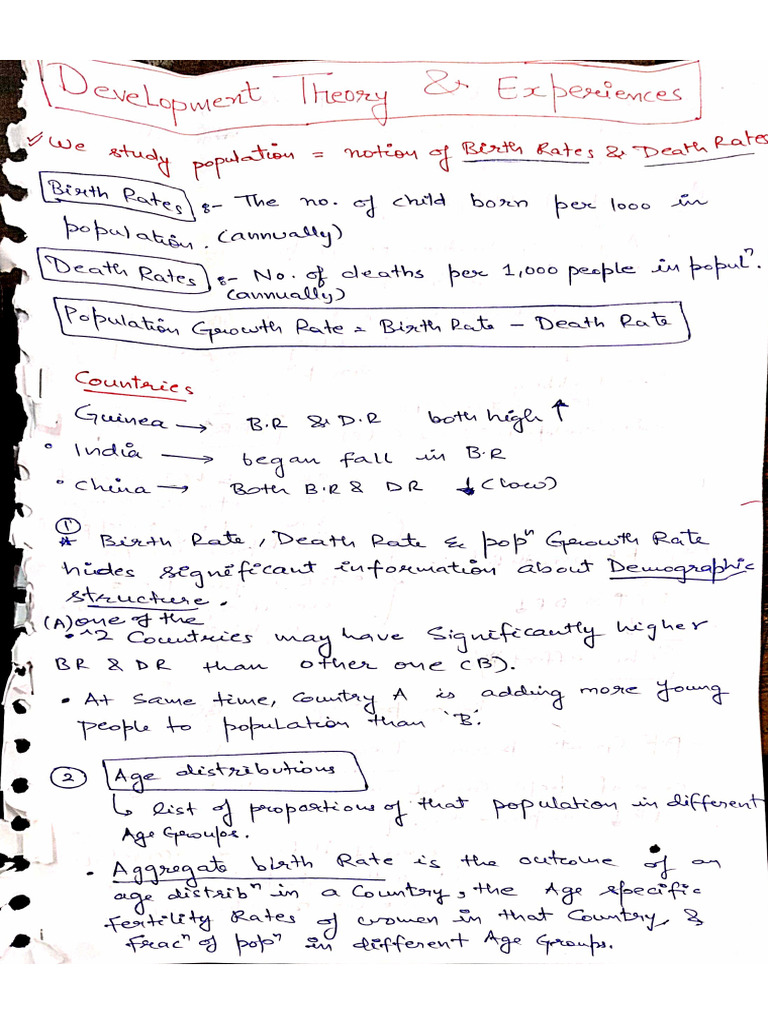 Development Theory & Experiences
✓ We study population = notion of Birth Rates & Death Rates
Birth Rates :- The no. of child born per 1000 in
population. (annually)
Death Rates :- No. of deaths per 1,000 people in populⁿ.
(annually)
Population Growth Rate = Birth Rate - Death Rate
Countries
Guinea → B.R & D.R both high ↑
• India → began fall in B.R
• China → Both B.R & DR ↓ (low)
①
* Birth Rate, Death Rate & popⁿ Growth Rate
hides significant information about Demographic
structure.
(A) one of the
• ^2 Countries may have Significantly higher
BR & DR than other one (B).
• At same time, Country A is adding more young
people to population than 'B'.
② Age distributions
↳ list of proportions of that population in different
Age Groups.
• Aggregate birth Rate is the outcome of an
age distribⁿ in a Country, the Age specific
Fertility Rates of women in that Country &
Fracⁿ of popⁿ in different Age Groups.